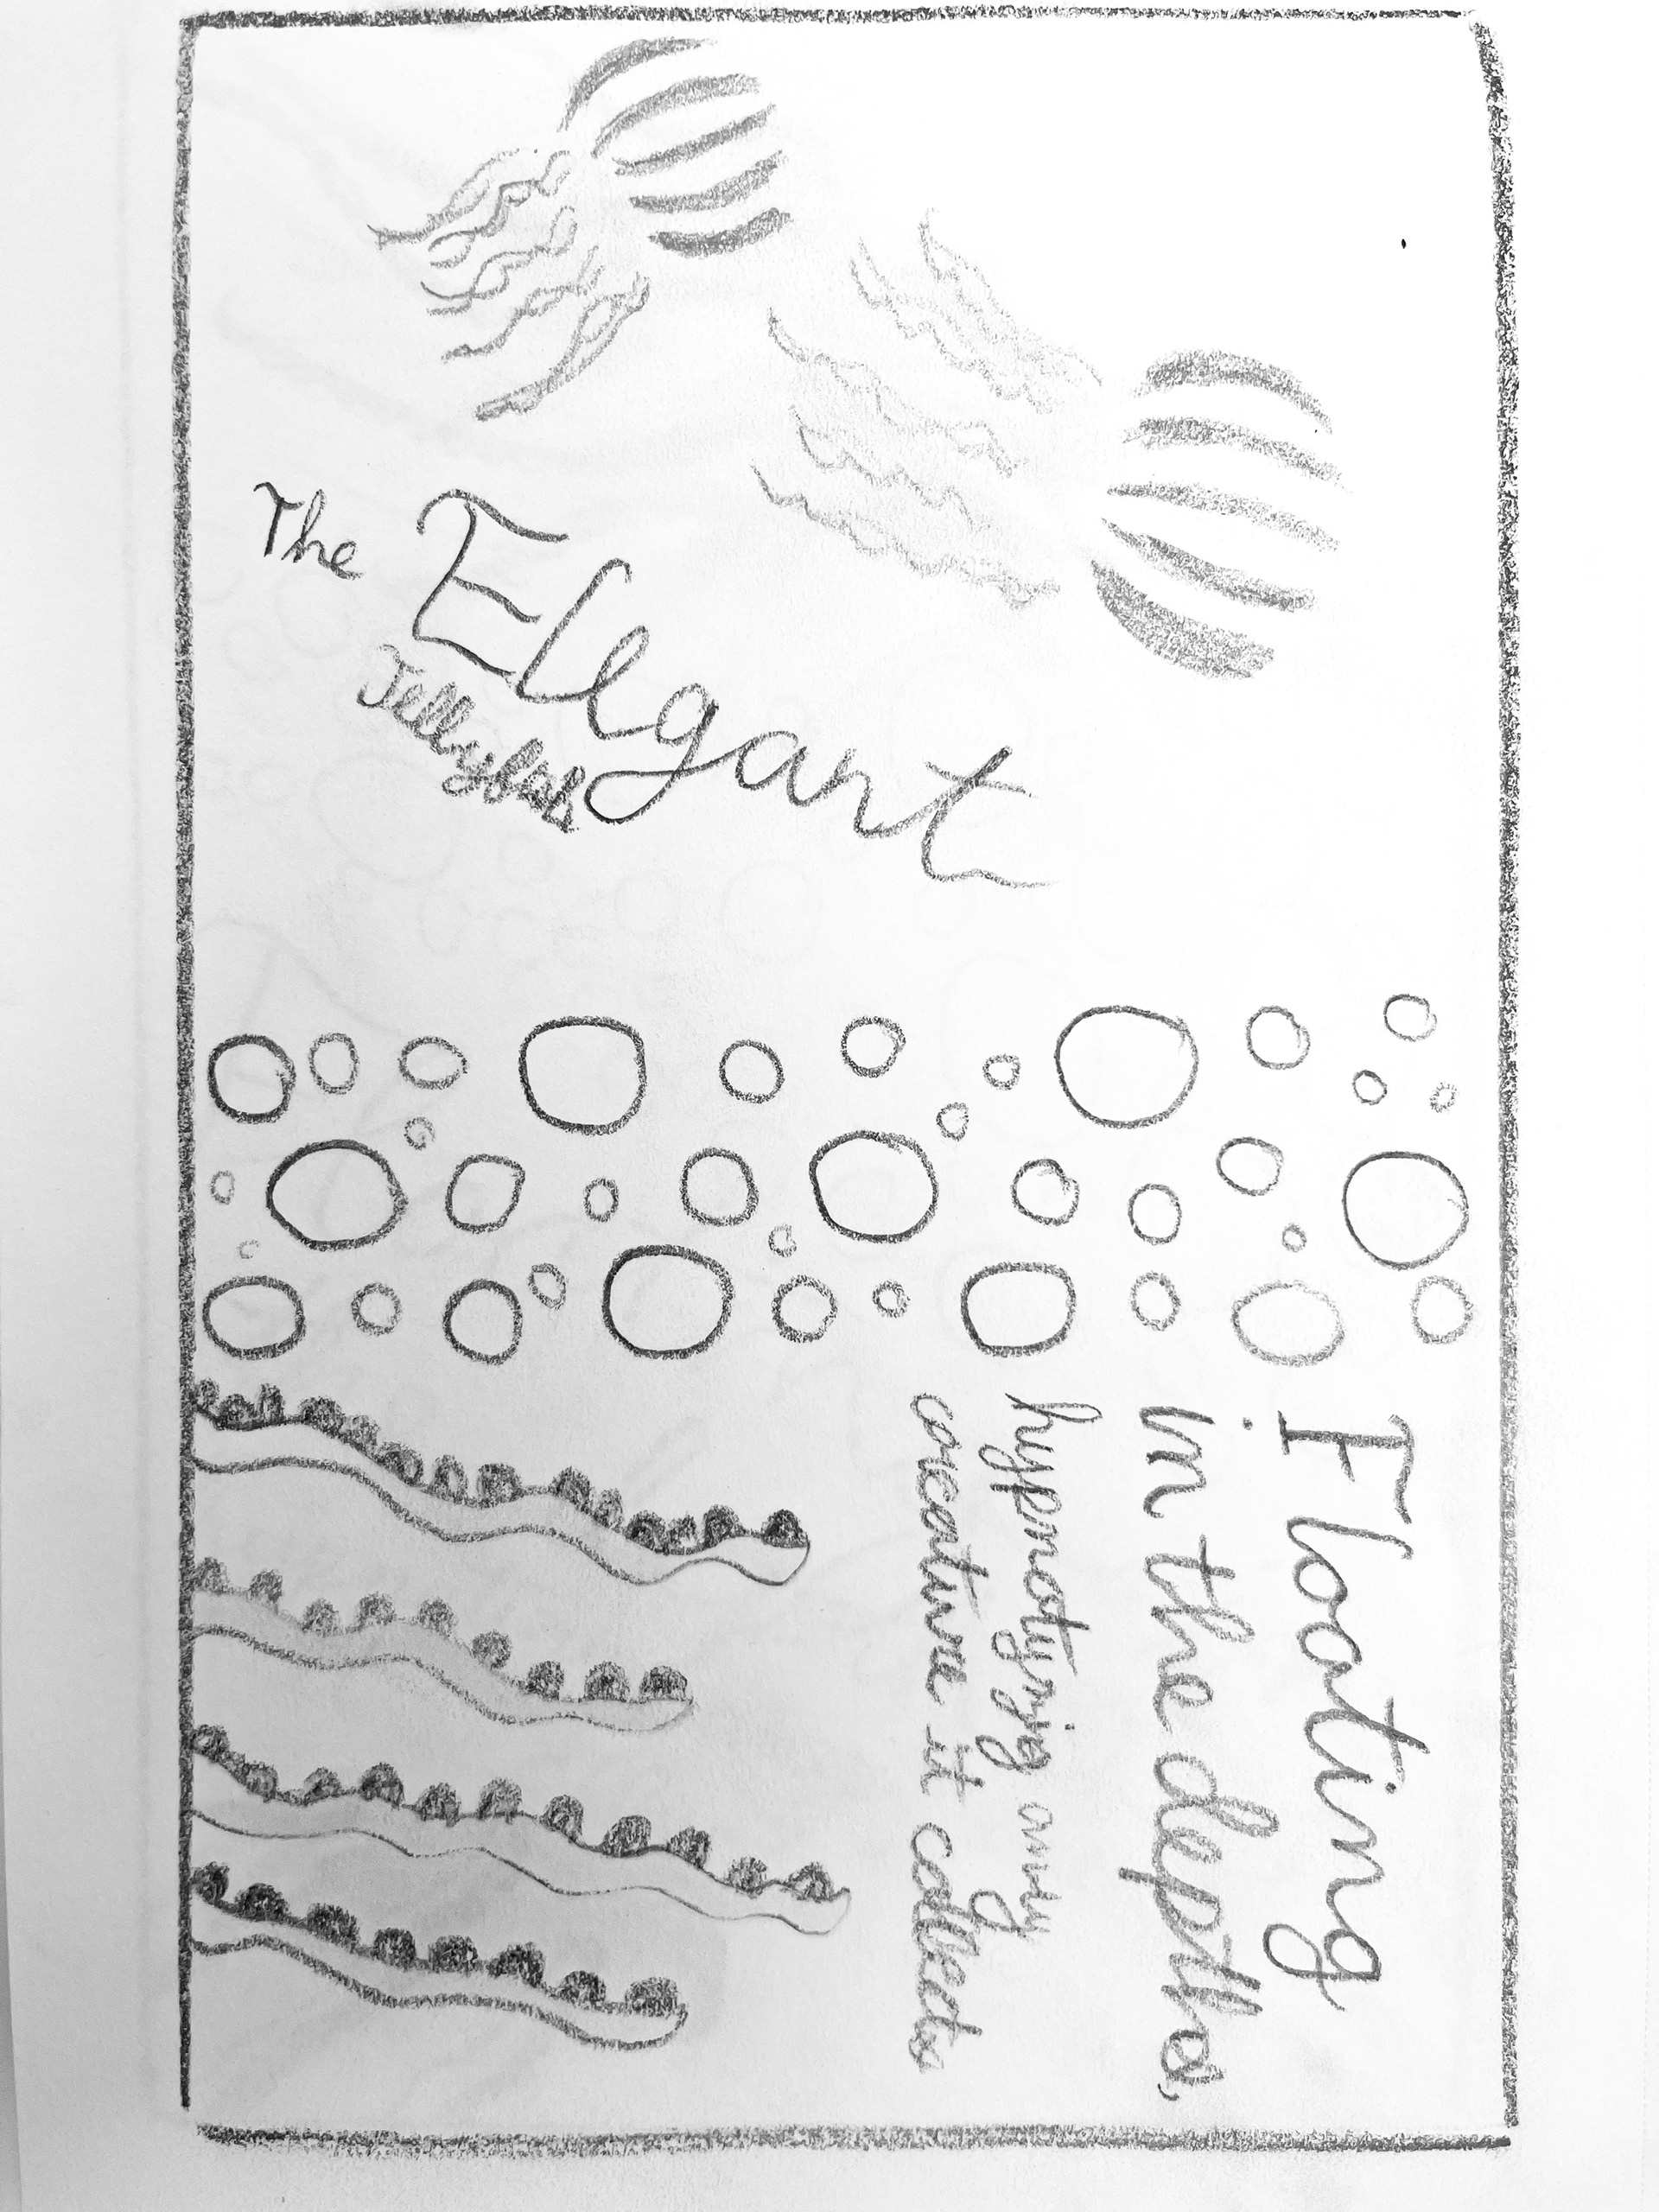 The
Elegant
Jellyfish
Floating
in the depths,
hypnotyzing any
coreature it collects